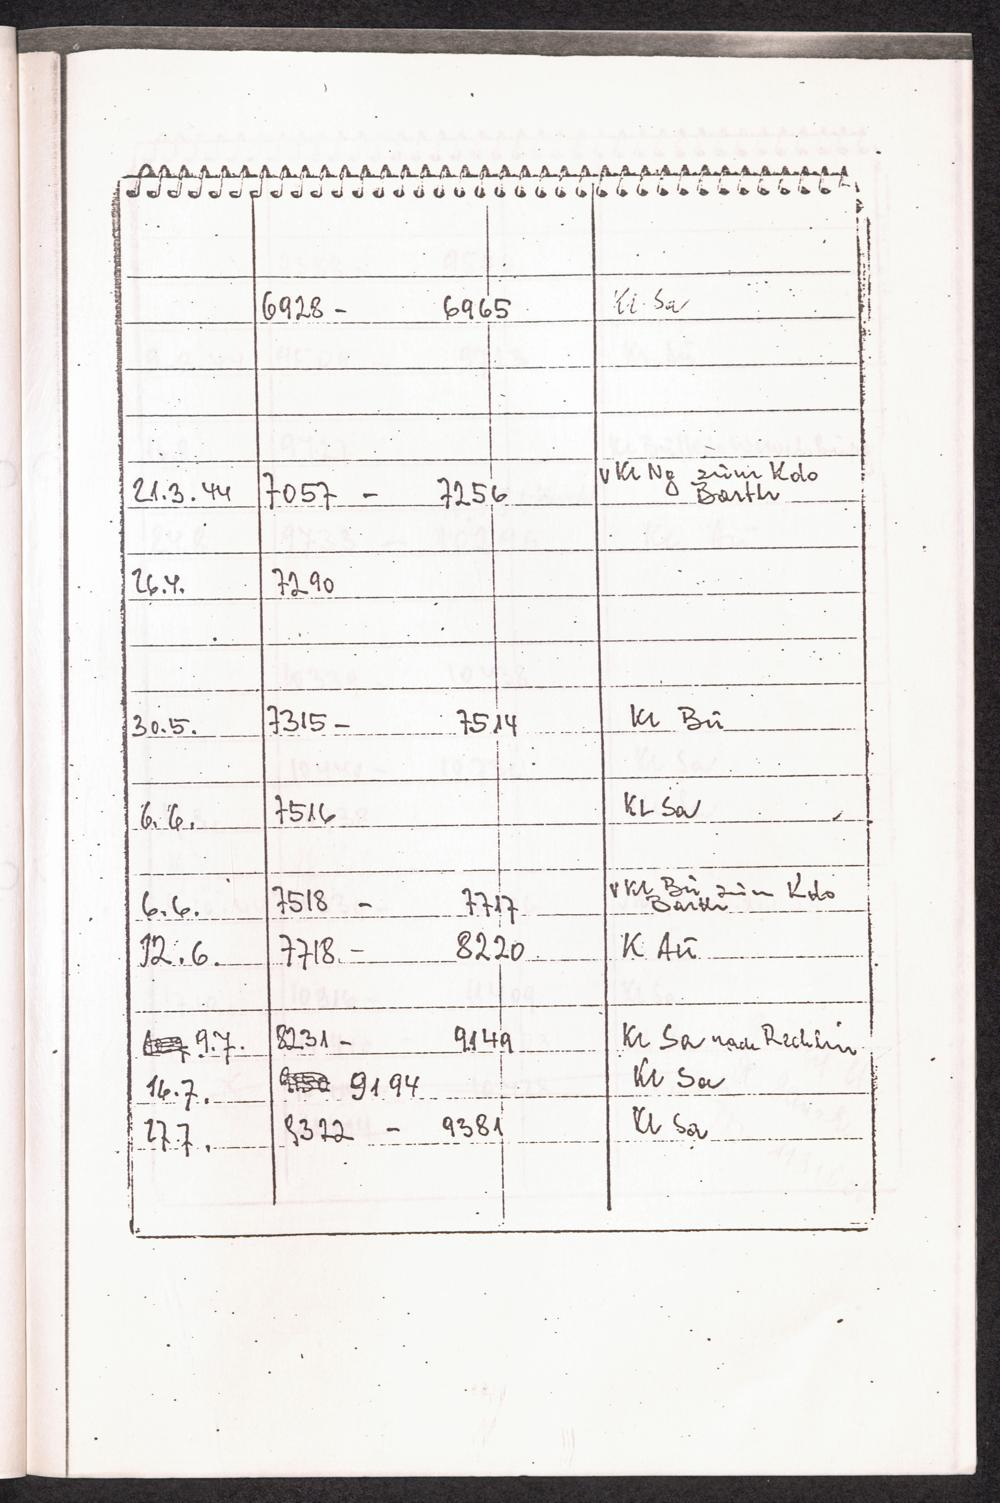 6928 - 6965 Kl Sa
v Kl Ng zum Kdo
21.3.44 7057 - 7256 Barth
26.4. 7290
30.5. 7315 - 7514 Kl Bu
6.6. 7516 KL Sa
v Kl Bu zum Kdo
6.6. 7518 - 7717 Barth
12.6. 7718 - 8220 K Au
9.7. 8231 - 9149 Kl Sa nach Rechlin
16.7. 9194 Kl Sa
27.7. 9322 - 9381 Kl Sa